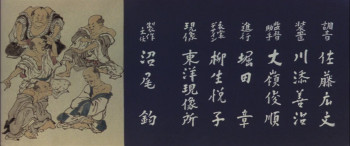 調音 佐藤広文
装置 川添善治
監督助手 大嶺俊順
進行 堀田章
衣裳 柳生悦子
現像 東洋現像所
製作主任 沼尾鈞